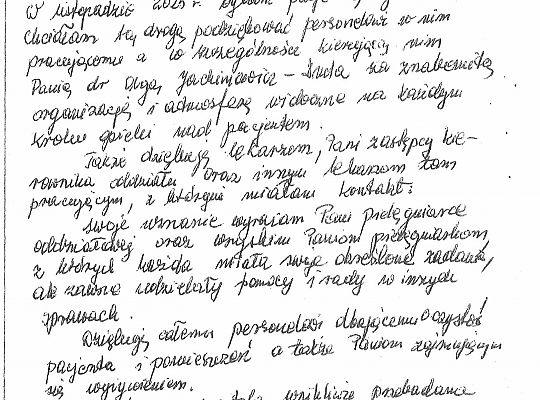 W listopadzie 2025 r. byłam
chciałam tą drogą podziękować personelowi w nim
pracującemu a w szczególności kierującej nim
Panią dr Olgą - Duda za znakomitą
organizację i atmosferę widoczne na każdym
kroku opieki nad pacjentem.
Także dziękuję lekarzom, Pani zastępcy kie-
rownika oddziału oraz innym lekarzom tam
pracującym, z którymi miałam kontakt.
Swoje uznanie wyrażam Pani pielęgniarce
oddziałowej oraz wszystkim Paniom pielęgniarkom,
z których każda miała swoje określone zadania,
ale zawsze udzielały pomocy i rady w innych
sprawach.
Dziękuję całemu personelowi dbającemu o czystość
pacjenta i pomieszczeń a także Paniom zajmującym
się wyżywieniem.
wnikliwie przebadana